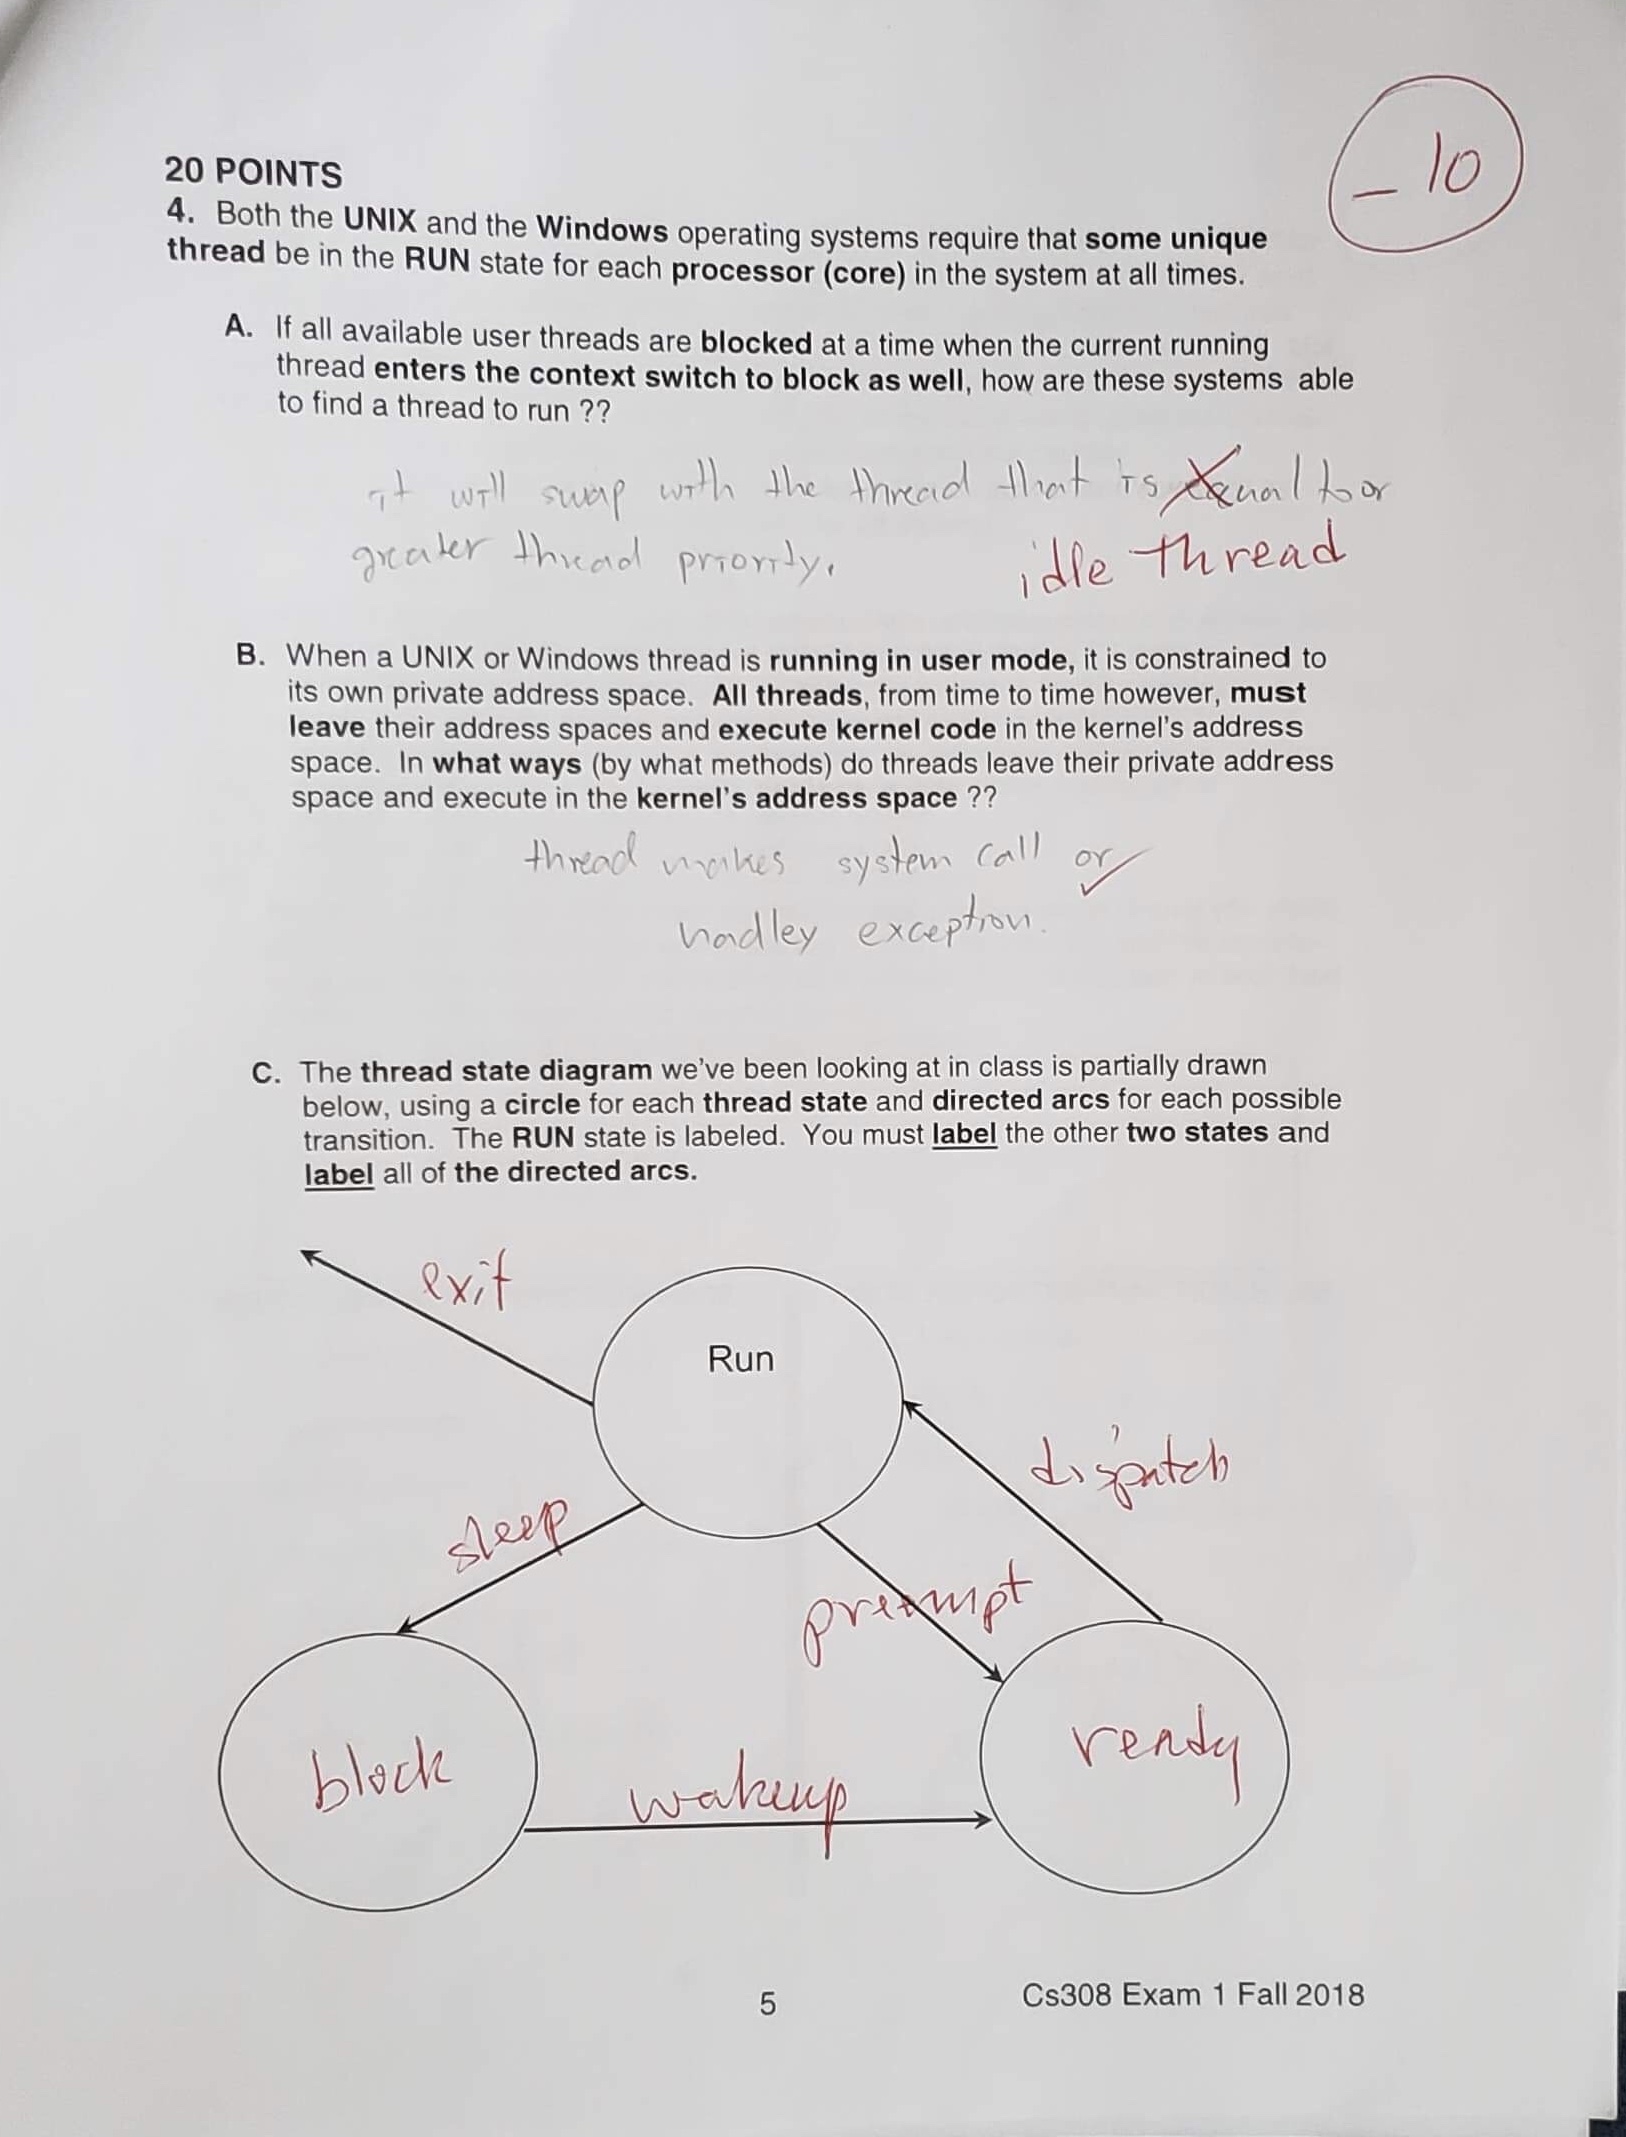 – 10
20 POINTS
4. Both the UNIX and the Windows operating systems require that some unique
thread be in the RUN state for each processor (core) in the system at all times.
A. If all available user threads are blocked at a time when the current running
thread enters the context switch to block as well, how are these systems able
to find a thread to run ??
it will swap with the thread that is equal to or
greater thread priority.
idle thread
B. When a UNIX or Windows thread is running in user mode, it is constrained to
its own private address space. All threads, from time to time however, must
leave their address spaces and execute kernel code in the kernel's address
space. In what ways (by what methods) do threads leave their private address
space and execute in the kernel's address space ??
thread makes system call or
hadley exception.
C. The thread state diagram we've been looking at in class is partially drawn
below, using a circle for each thread state and directed arcs for each possible
transition. The RUN state is labeled. You must label the other two states and
label all of the directed arcs.
exit
Run
dispatch
sleep
preempt
block
wakeup
ready
5
Cs308 Exam 1 Fall 2018